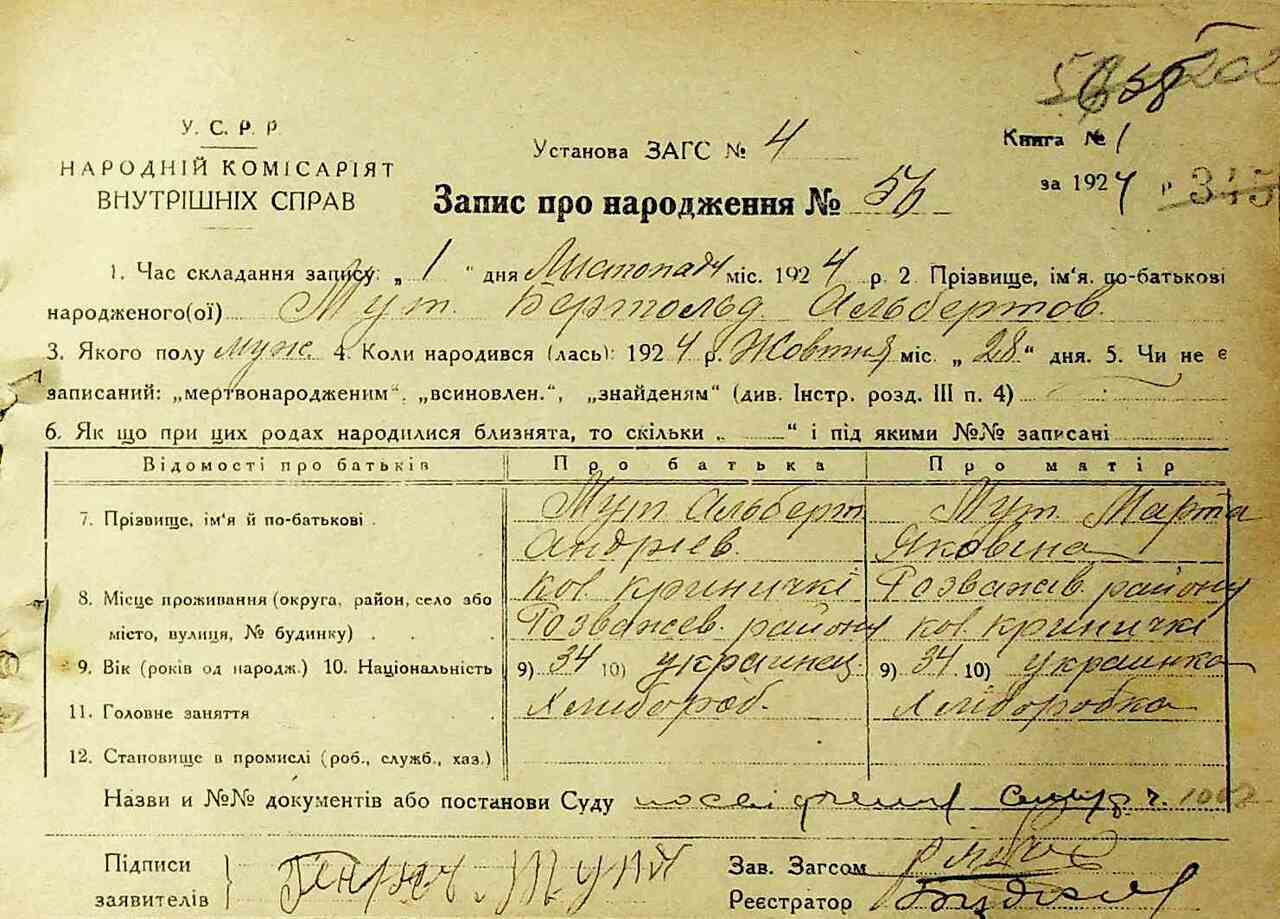 У. С. Р. Р.
НАРОДНІЙ КОМІСАРІЯТ
ВНУТРІШНІХ СПРАВ
Установа ЗАГС № 4
Книга № 1
за 1924 р.
345
Запис про народження № 56
1. Час складання запису: „ 1 " дня Листопада міс. 1924 р. 2. Прізвище, ім'я, по-батькові
народженого(ої) Мут Бертольд Альбертов.
3. Якого полу муж. 4. Коли народився (лась): 1924 р. Жовтня міс. „ 28 " дня. 5. Чи не є
записаний: „мертвонародженим". „всиновлен.", „знайденям" (див. Інстр. розд. III п. 4)
6. Як що при цих родах народилися близнята, то скільки „ " і під якими №№ записані
Відомості про батьків Про батька Про матір
7. Прізвище, ім'я й по-батькові Мут Альберт Мут Марта
Андрієв. Яковівна
8. Місце проживання (округа, район, село або кол. Криничкі Розважев. району
місто, вулиця, № будинку) Розважев. району кол. Криничкі
9. Вік (років од народж.) 10. Національність 9) 34 10) украинец 9) 34 10) украинка
11. Головне заняття Хлибороб. Хлиборобка
12. Становище в промислі (роб., служб., хаз.)
Назви и №№ документів або постанови Суду
Підписи
заявителів
Зав. Загсом
Реєстратор